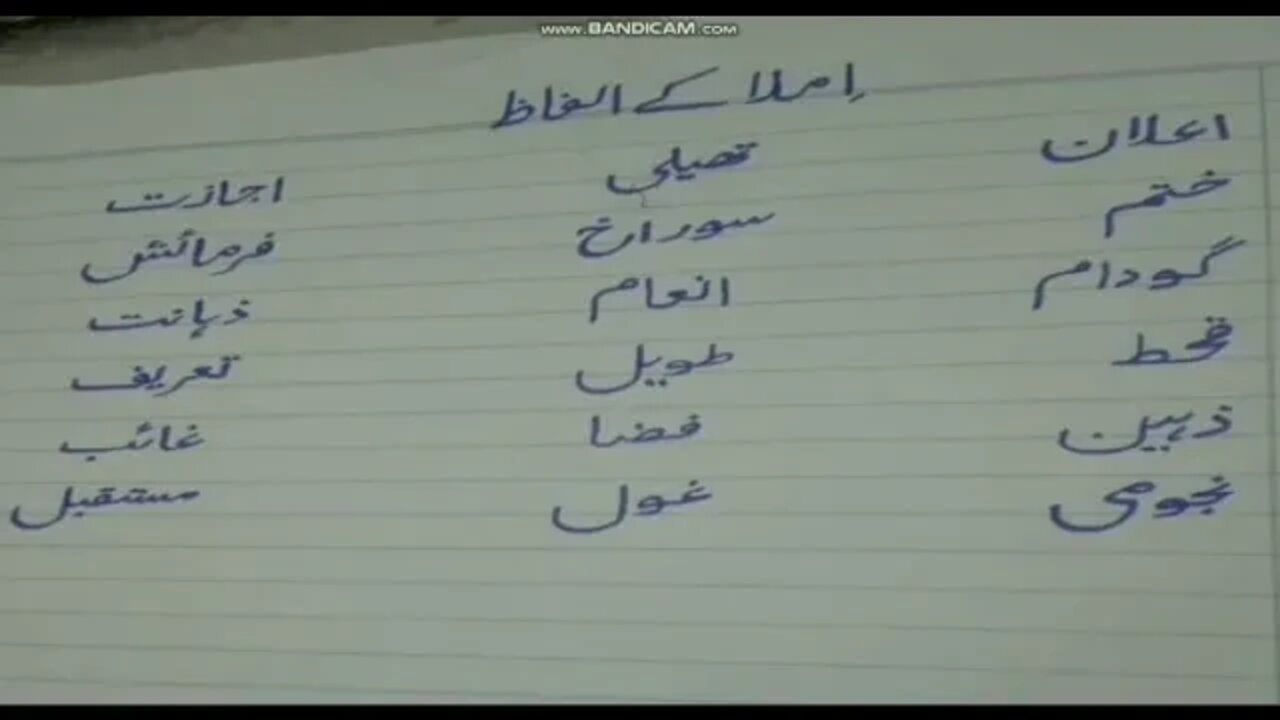 www.BANDICAM.com
اِملا کے الفاظ
اعلان تھیلی اجازت
ختم سوراخ فرمائش
گودام انعام ذہانت
قحط طویل تعریف
ذہین فضا غائب
نجومی غول مستقبل